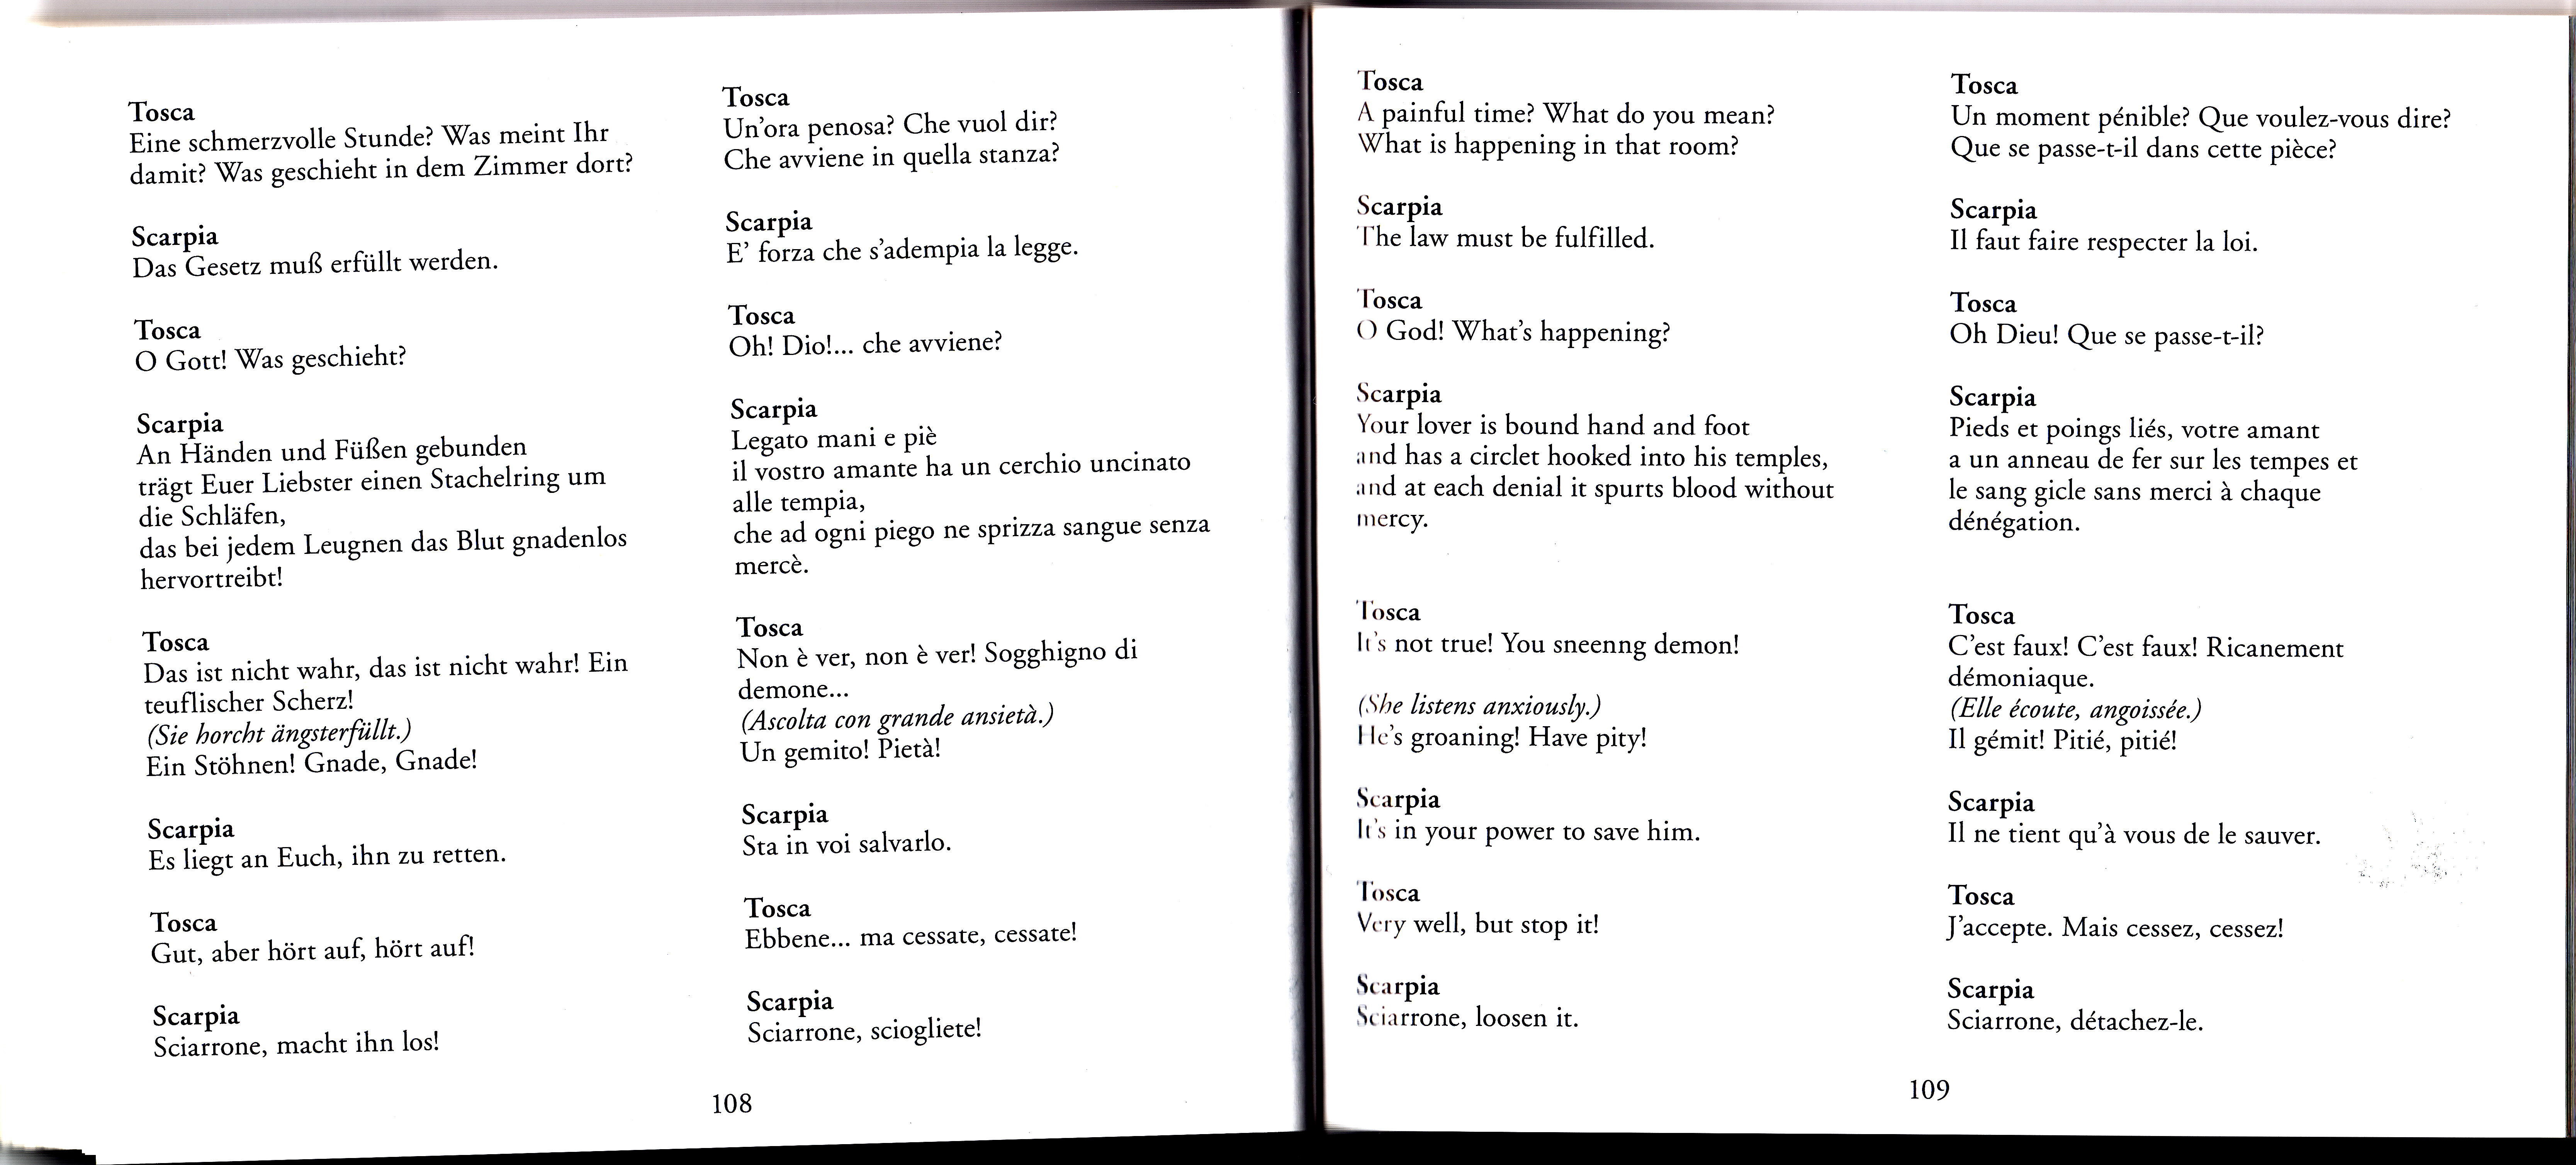 Tosca
Eine schmerzvolle Stunde? Was meint Ihr
damit? Was geschieht in dem Zimmer dort?
Scarpia
Das Gesetz muß erfüllt werden.
Tosca
O Gott! Was geschieht?
Scarpia
An Händen und Füßen gebunden
trägt Euer Liebster einen Stachelring um
die Schläfen,
das bei jedem Leugnen das Blut gnadenlos
hervortreibt!
Tosca
Das ist nicht wahr, das ist nicht wahr! Ein
teuflischer Scherz!
(Sie horcht ängsterfüllt.)
Ein Stöhnen! Gnade, Gnade!
Scarpia
Es liegt an Euch, ihn zu retten.
Tosca
Gut, aber hört auf, hört auf!
Scarpia
Sciarrone, macht ihn los!
Tosca
Un'ora penosa? Che vuol dir?
Che avviene in quella stanza?
Scarpia
E' forza che s'adempia la legge.
Tosca
Oh! Dio!... che avviene?
Scarpia
Legato mani e piè
il vostro amante ha un cerchio uncinato
alle tempia,
che ad ogni piego ne sprizza sangue senza
mercè.
Tosca
Non è ver, non è ver! Sogghigno di
demone...
(Ascolta con grande ansietà.)
Un gemito! Pietà!
Scarpia
Sta in voi salvarlo.
Tosca
Ebbene... ma cessate, cessate!
Scarpia
Sciarrone, sciogliete!
108
Tosca
A painful time? What do you mean?
What is happening in that room?
Scarpia
The law must be fulfilled.
Tosca
O God! What's happening?
Scarpia
Your lover is bound hand and foot
and has a circlet hooked into his temples,
and at each denial it spurts blood without
mercy.
Tosca
It's not true! You sneenng demon!
(She listens anxiously.)
He's groaning! Have pity!
Scarpia
It's in your power to save him.
Tosca
Very well, but stop it!
Scarpia
Sciarrone, loosen it.
Tosca
Un moment pénible? Que voulez-vous dire?
Que se passe-t-il dans cette pièce?
Scarpia
Il faut faire respecter la loi.
Tosca
Oh Dieu! Que se passe-t-il?
Scarpia
Pieds et poings liés, votre amant
a un anneau de fer sur les tempes et
le sang gicle sans merci à chaque
dénégation.
Tosca
C'est faux! C'est faux! Ricanement
démoniaque.
(Elle écoute, angoissée.)
Il gémit! Pitié, pitié!
Scarpia
Il ne tient qu'à vous de le sauver.
Tosca
J'accepte. Mais cessez, cessez!
Scarpia
Sciarrone, détachez-le.
109